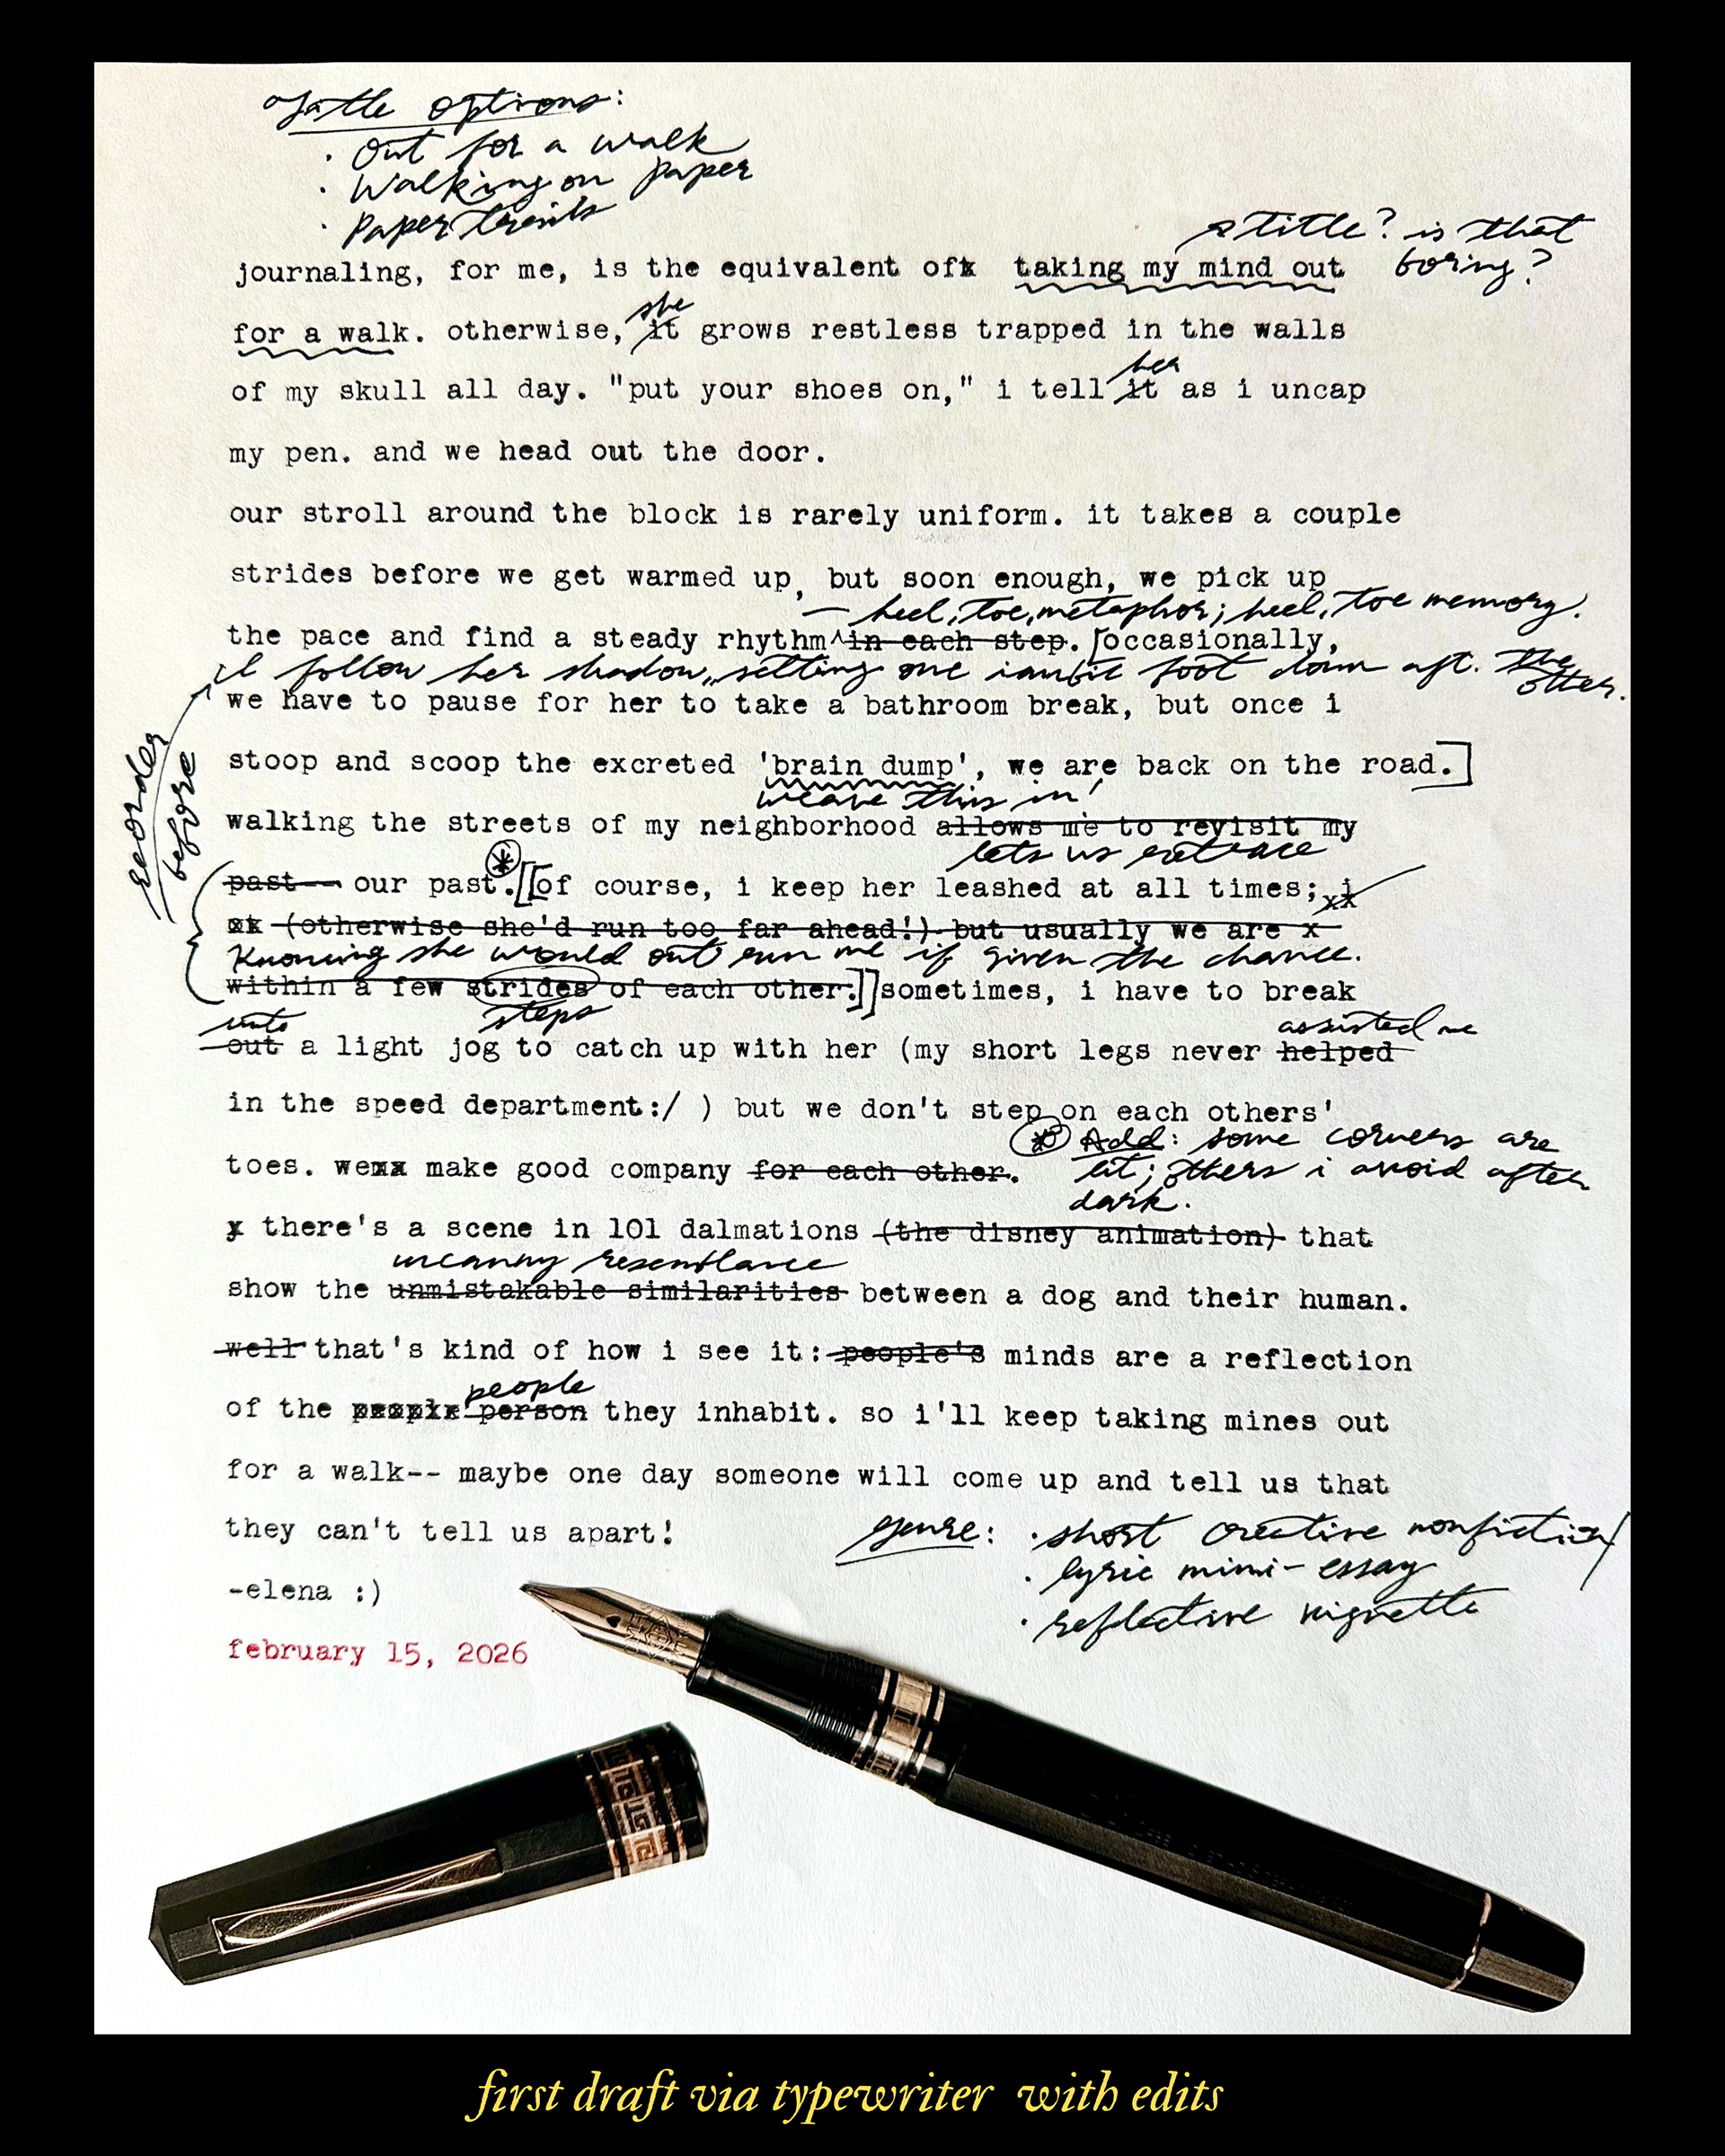 title options:
· Out for a walk
· Walking on paper
· Paper trails
title? is that
boring?
journaling, for me, is the equivalent ofx taking my mind out
she
for a walk. otherwise, it grows restless trapped in the walls
her
of my skull all day. "put your shoes on," i tell it as i uncap
my pen. and we head out the door.
our stroll around the block is rarely uniform. it takes a couple
strides before we get warmed up, but soon enough, we pick up
— heel, toe, metaphor; heel, toe memory.
the pace and find a steady rhythm^in each step. [occasionally,
I follow her shadow, setting one iambic foot down aft. the
other.
we have to pause for her to take a bathroom break, but once i
stoop and scoop the excreted 'brain dump', we are back on the road.]
weave this in!
reorder
before
walking the streets of my neighborhood allows me to revisit my
lets us retrace
past-- our past.[[of course, i keep her leashed at all times; i
xx
xx (otherwise she'd run too far ahead!) but usually we are x
Knowing she would out run me if given the chance.
within a few strides of each other.]]sometimes, i have to break
steps
into
assisted me
out a light jog to catch up with her (my short legs never helped
in the speed department:/ ) but we don't step on each others'
* Add: some corners are
lit; others i avoid after
dark.
toes. wexx make good company for each other.
x there's a scene in 101 dalmations (the disney animation) that
uncanny resemblance
show the unmistakable similarities between a dog and their human.
well that's kind of how i see it: people's minds are a reflection
people
of the person they inhabit. so i'll keep taking mines out
for a walk-- maybe one day someone will come up and tell us that
they can't tell us apart!
genre: · short creative nonfiction
· lyric mini-essay
· reflective vignette
-elena :)
february 15, 2026
first draft via typewriter with edits